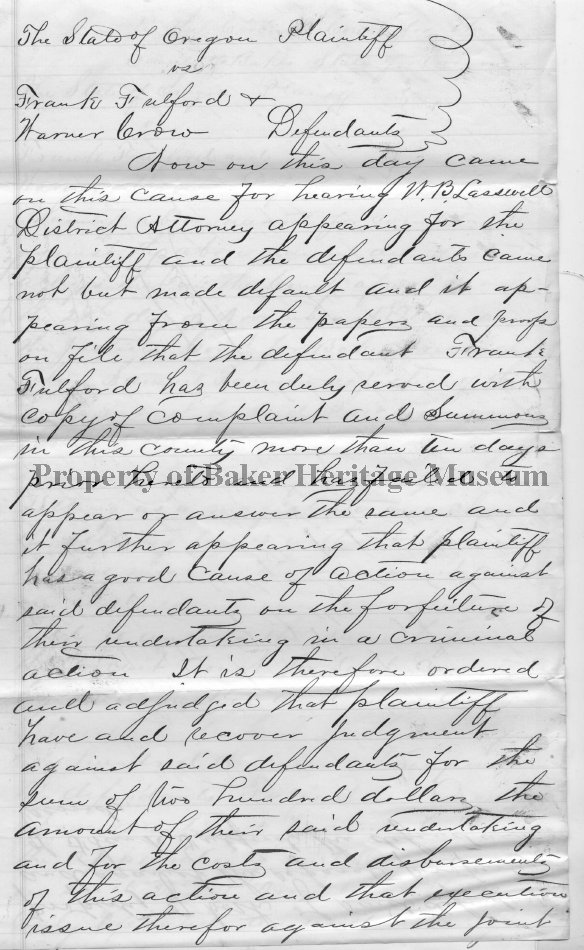 The State of Oregon Plaintiff
vs
Frank Fulford &
Warner Crow Defendants
Now on this day came
on this cause for hearing W.B. Lasswell
District Attorney appearing for the
plaintiff and the defendants came
not but made default and it ap-
pearing from the papers and proofs
on file that the defendant Frank
Fulford has been duly served with
copy of complaint and Summons
in this county more than ten days
prior hereto and has failed to
Property of Baker Heritage Museum
appear or answer the same and
it further appearing that plaintiff
has a good cause of action against
said defendants on the forfeiture of
their undertaking in a criminal
action It is therefore ordered
and adjudged that plaintiff
have and recover judgment
against said defendants for the
sum of two hundred dollars the
amount of their said undertaking
and for the costs and disbursements
of this action and that execution
issue therefor against the joint